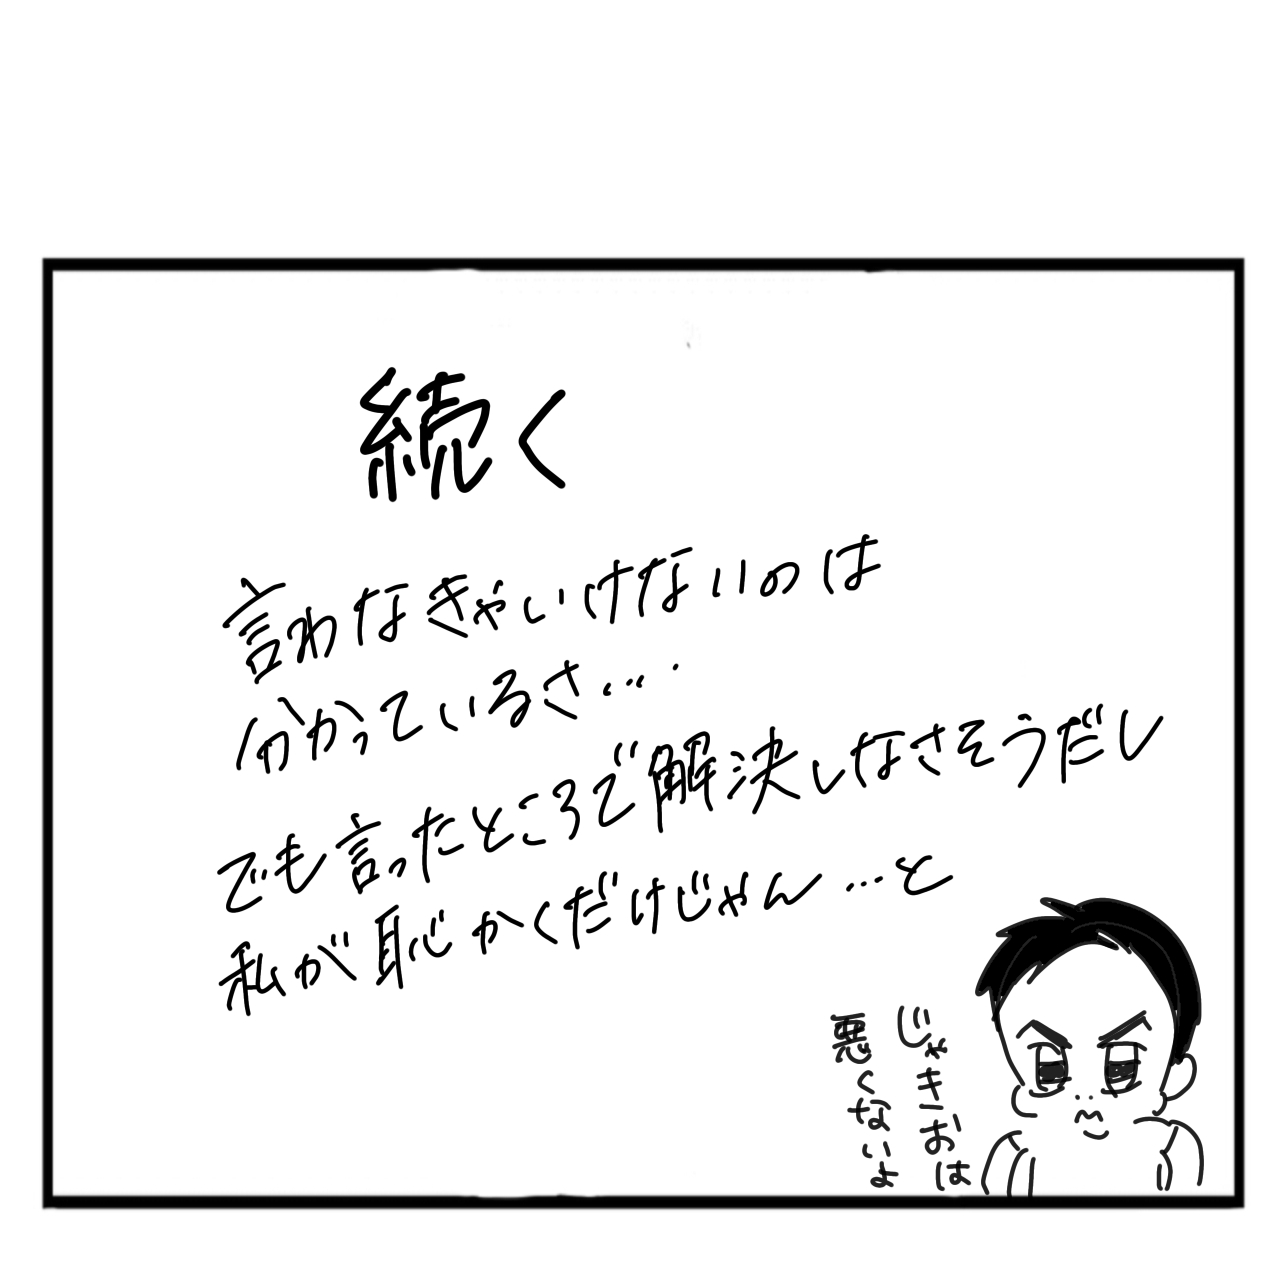 続く
言わなきゃいけないのは
分かっているさ….
でも言ったところで解決しなさそうだし
私が恥かくだけじゃん…と
じゃきおは
悪くないよ